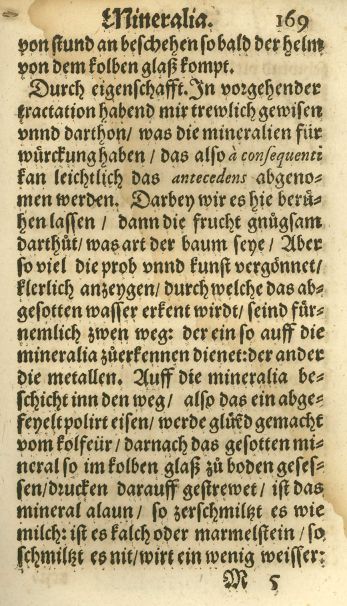 Mineralia. 169
von stund an beschehen so bald der helm
von dem kolben glaß kompt.
Durch eigenschafft. In vorgehender
tractation habend mir trewlich gewisen
vnnd darthon/ was die mineralien für
würckung haben/ das also à consequenti
kan leichtlich das antecedens abgeno-
men werden. Darbey wir es hie berü-
hen lassen/ dann die frucht gnůgsam
darthůt/ was art der baum seye/ Aber
so viel die prob vnnd kunst vergönnet/
klerlich anzeygen/ durch welche das ab-
gesotten wasser erkent wirdt/ seind für-
nemlich zwen weg: der ein so auff die
mineralia zůerkennen dienet: der ander
die metallen. Auff die mineralia be-
schicht inn den weg/ also das ein abge-
feyelt polirt eisen/ werde glůed gemacht
vom kolfeür/ darnach das gesotten mi-
neral so im kolben glaß zů boden geses-
sen/ drucken darauff gestrewet/ ist das
mineral alaun/ so zerschmiltzt es wie
milch: ist es kalch oder marmelstein/ so
schmiltzt es nit/ wirt ein wenig weisser:
M 5